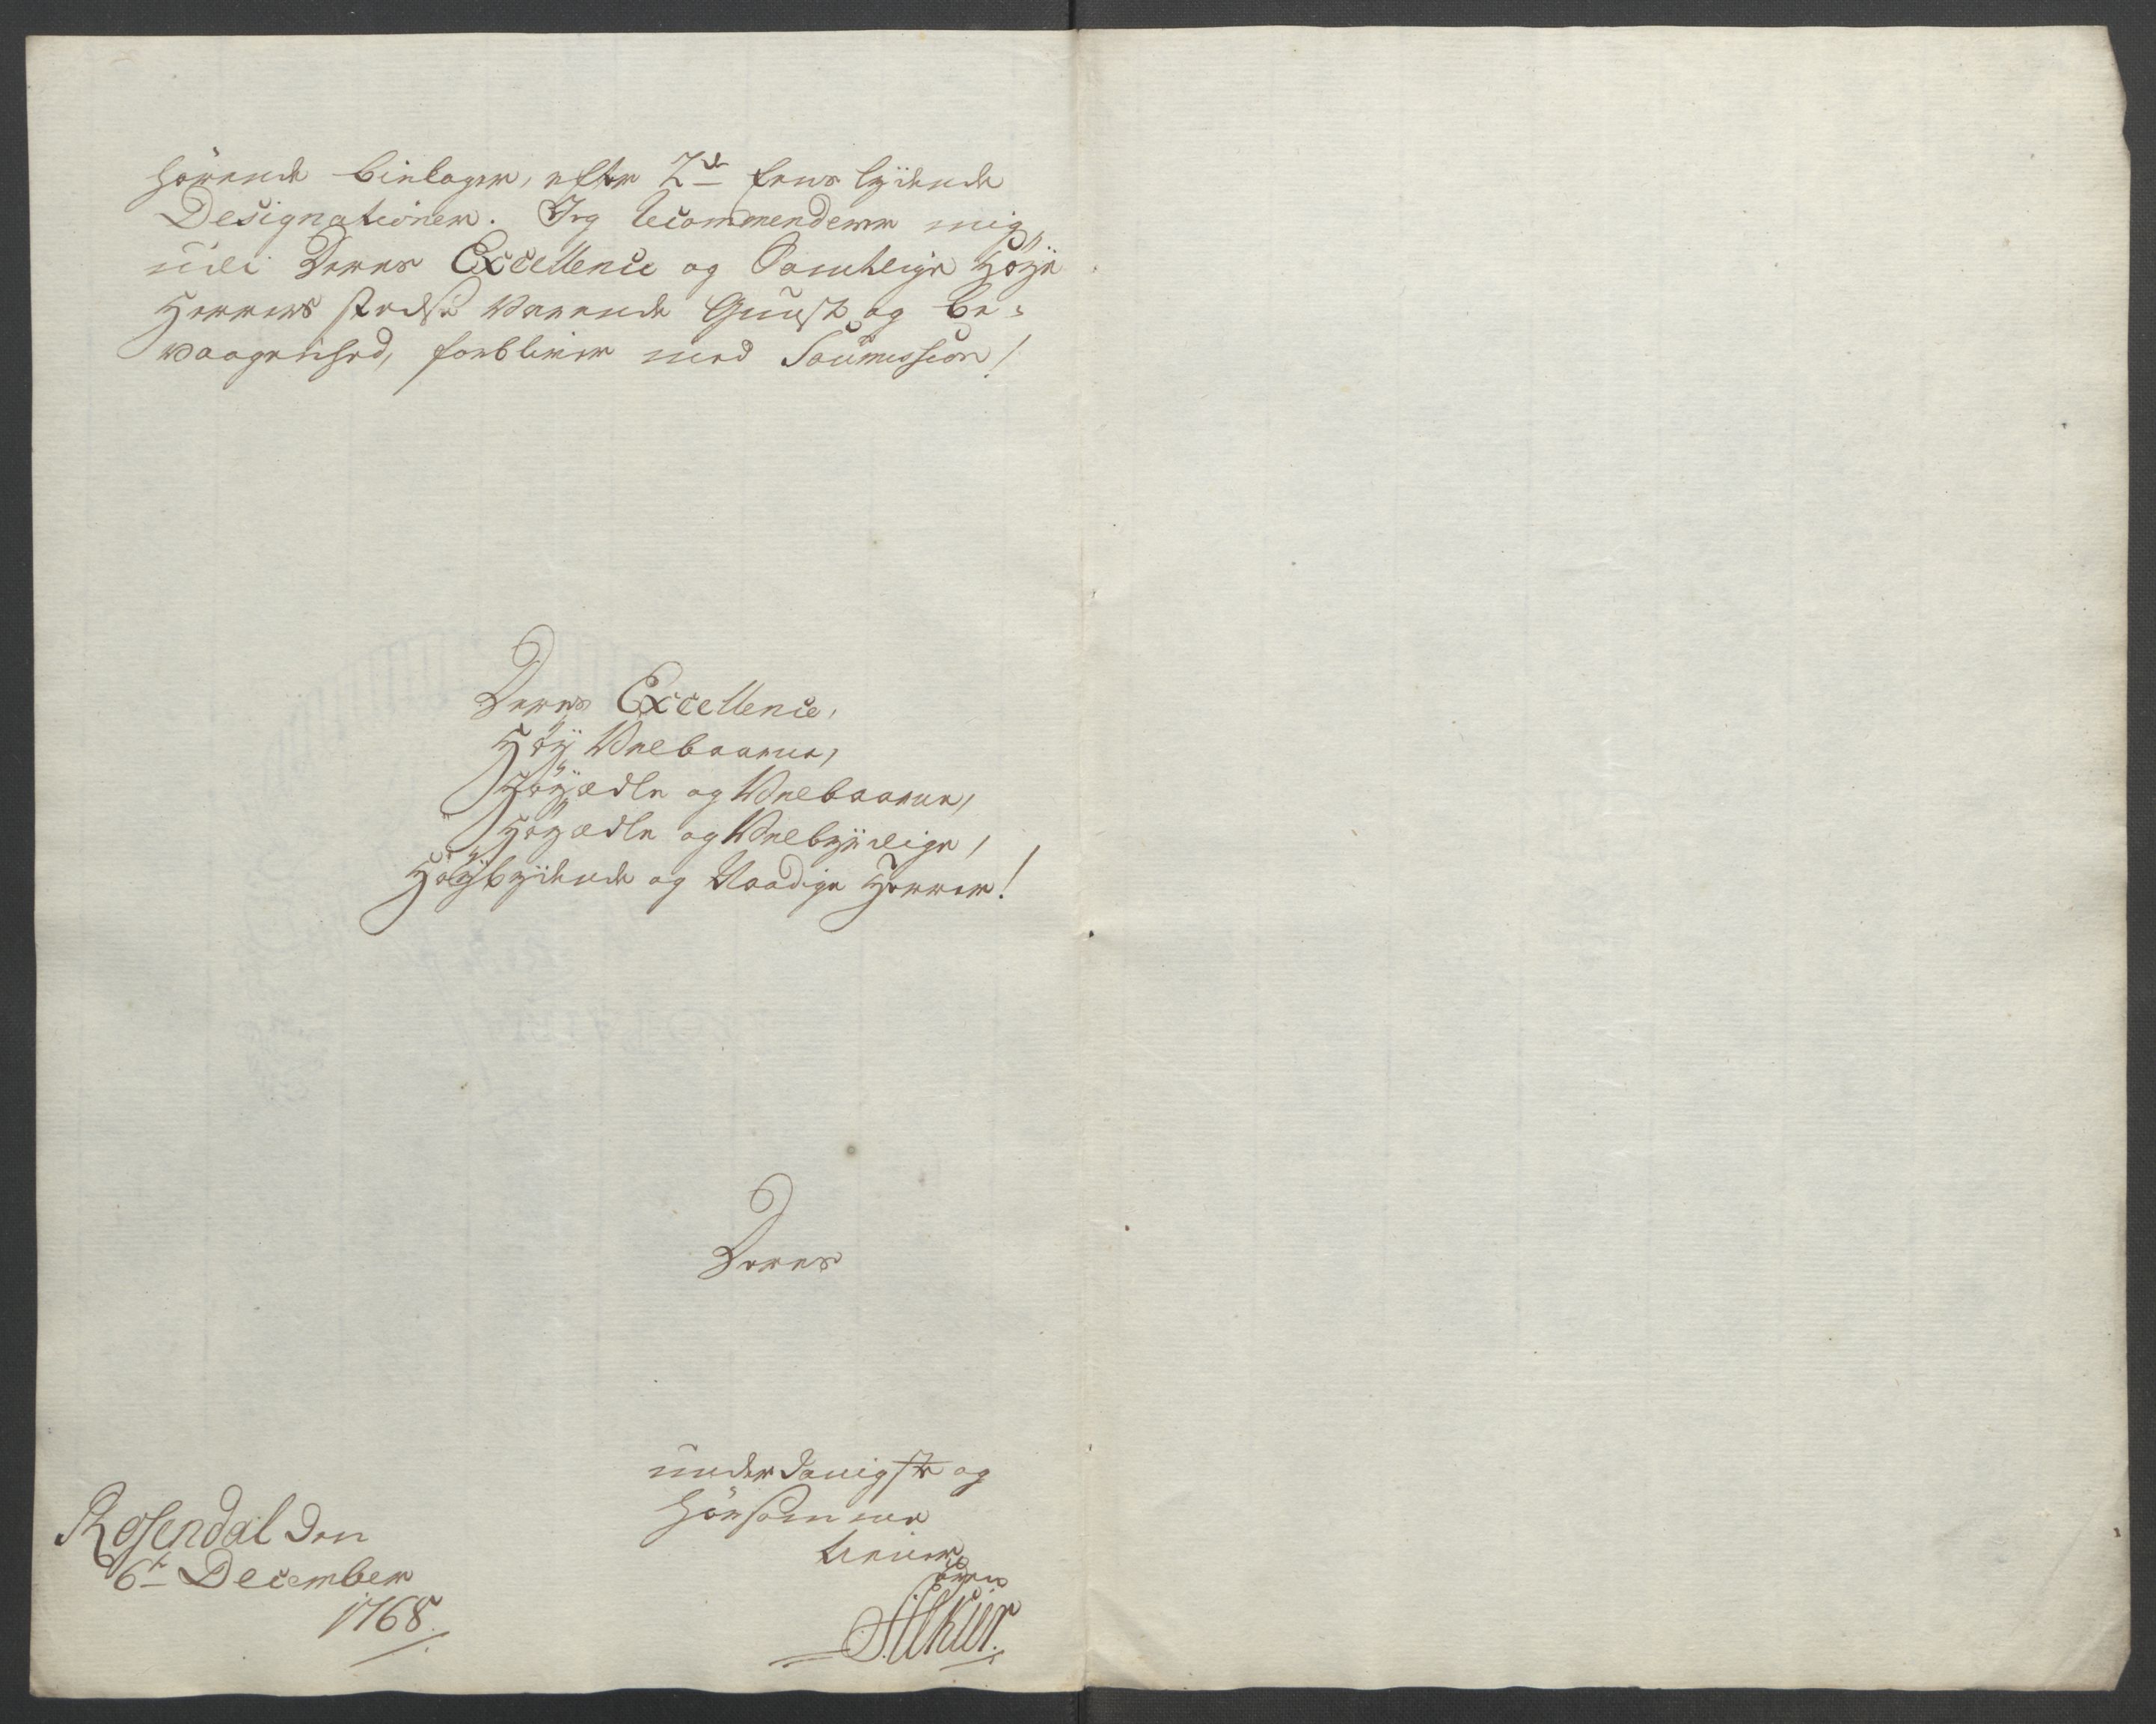 hörende bielager, efter 2de Eenslÿdende
Designationer. Jeg Recommenderer mig
udi Deres Excellence og Samtlige Höÿe
Herrers stedse varende Gunst og be-
vaagenhed, forbliver med Soumission!
Deres Excellence,
Höÿ Velbaarne,
Höÿædle og Velbaarne,
Höÿædle og Velbÿrdige,
Höÿbÿdende og Naadige Herrer!
Deres
underdanigste og
hörsomme
tiener
Rosendal den
6te December
1768.